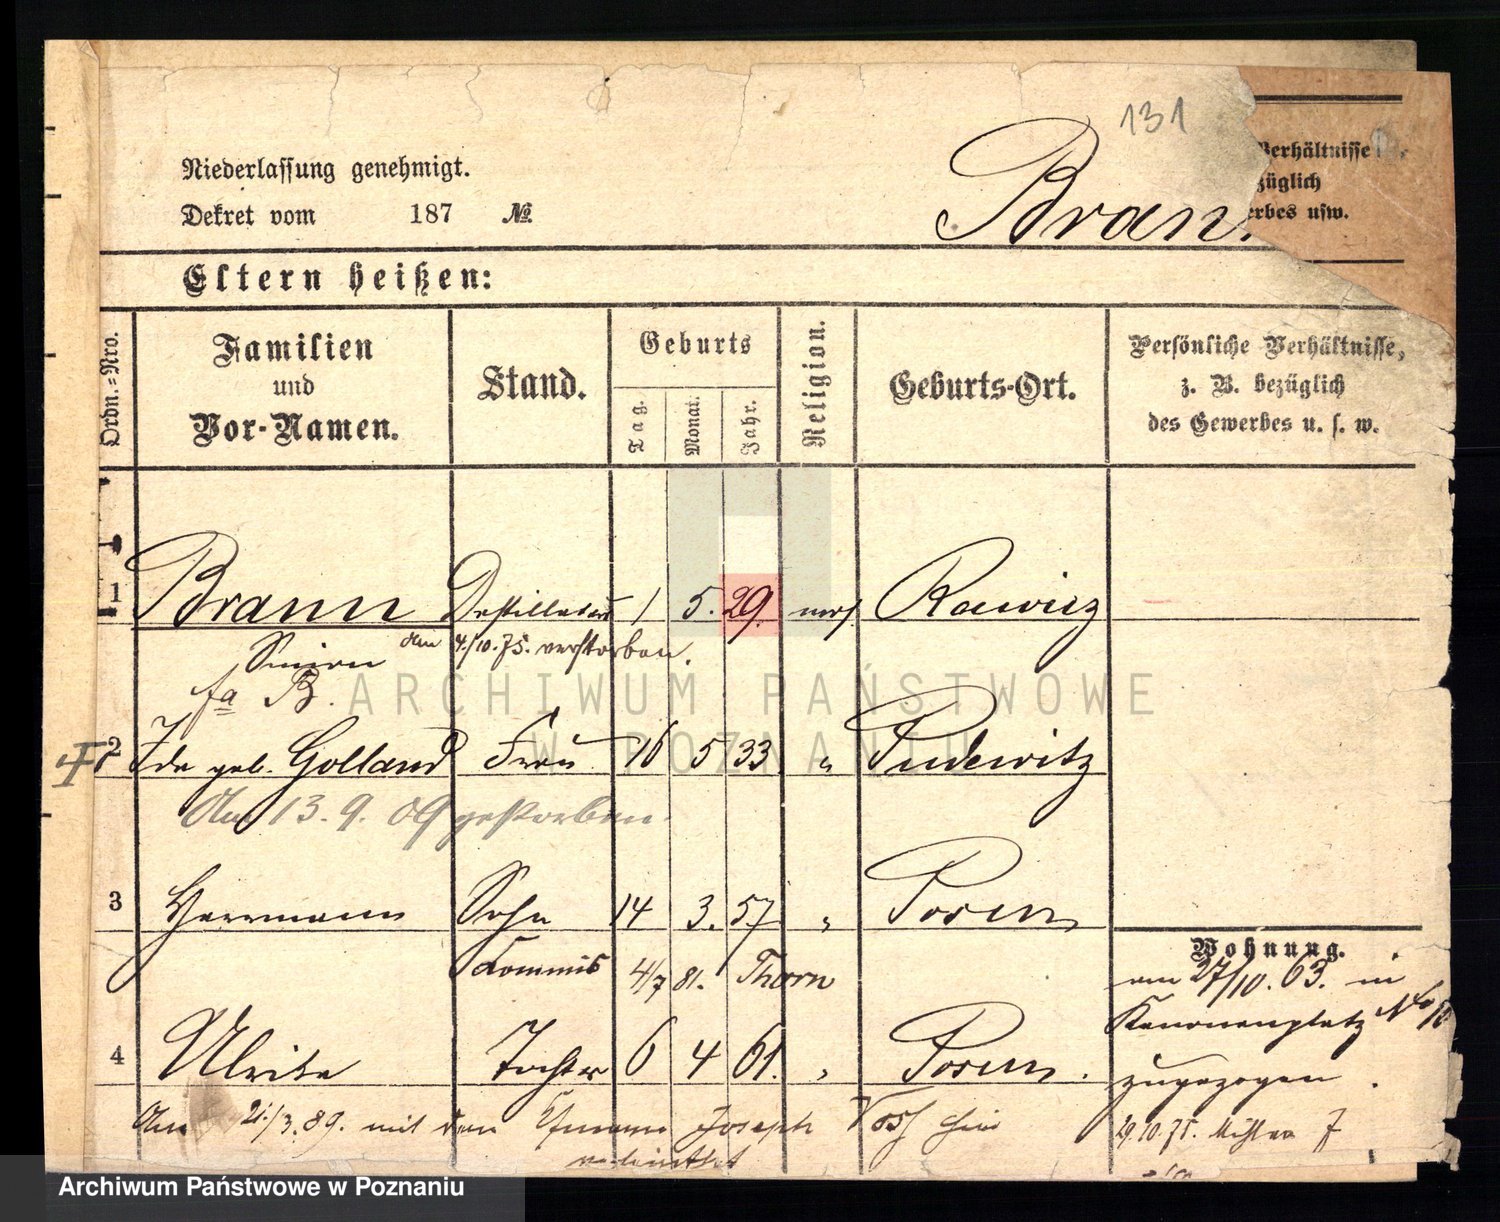 131
Niederlassung genehmigt.
Dekret vom 187 №
Bran
Verhältnisse
züglich
erbes usw.
Eltern heißen:
Ordn.=Nro.
Familien
und
Vor-Namen.
Stand.
Geburts
Tag.
Monat.
Jahr.
Religion.
Geburts-Ort.
Persönliche Verhältnisse,
z. B. bezüglich
des Gewerbes u. s. w.
1 Brann Destillateur 1 5. 29. mos Rawicz
am 4./10.75. verstorben.
fa B.
2 Ida geb. Golland Frau 16 5 33 " Pudewitz
Am 13. 9. 09 gestorben
3 Herrmann Sohn 14 3. 57 " Posen
Kommis 4/7 81. Thorn
4 Ulrike Tochter 6 4 61. " Posen.
Am 21./3.89. mit dem Joseph
Wohnung.
am 27/10. 63. in
Kanonenplatz No 10
zugezogen.
29.10.75.
ARCHIWUM PAŃSTWOWE
W POZNANIU
Archiwum Państwowe w Poznaniu